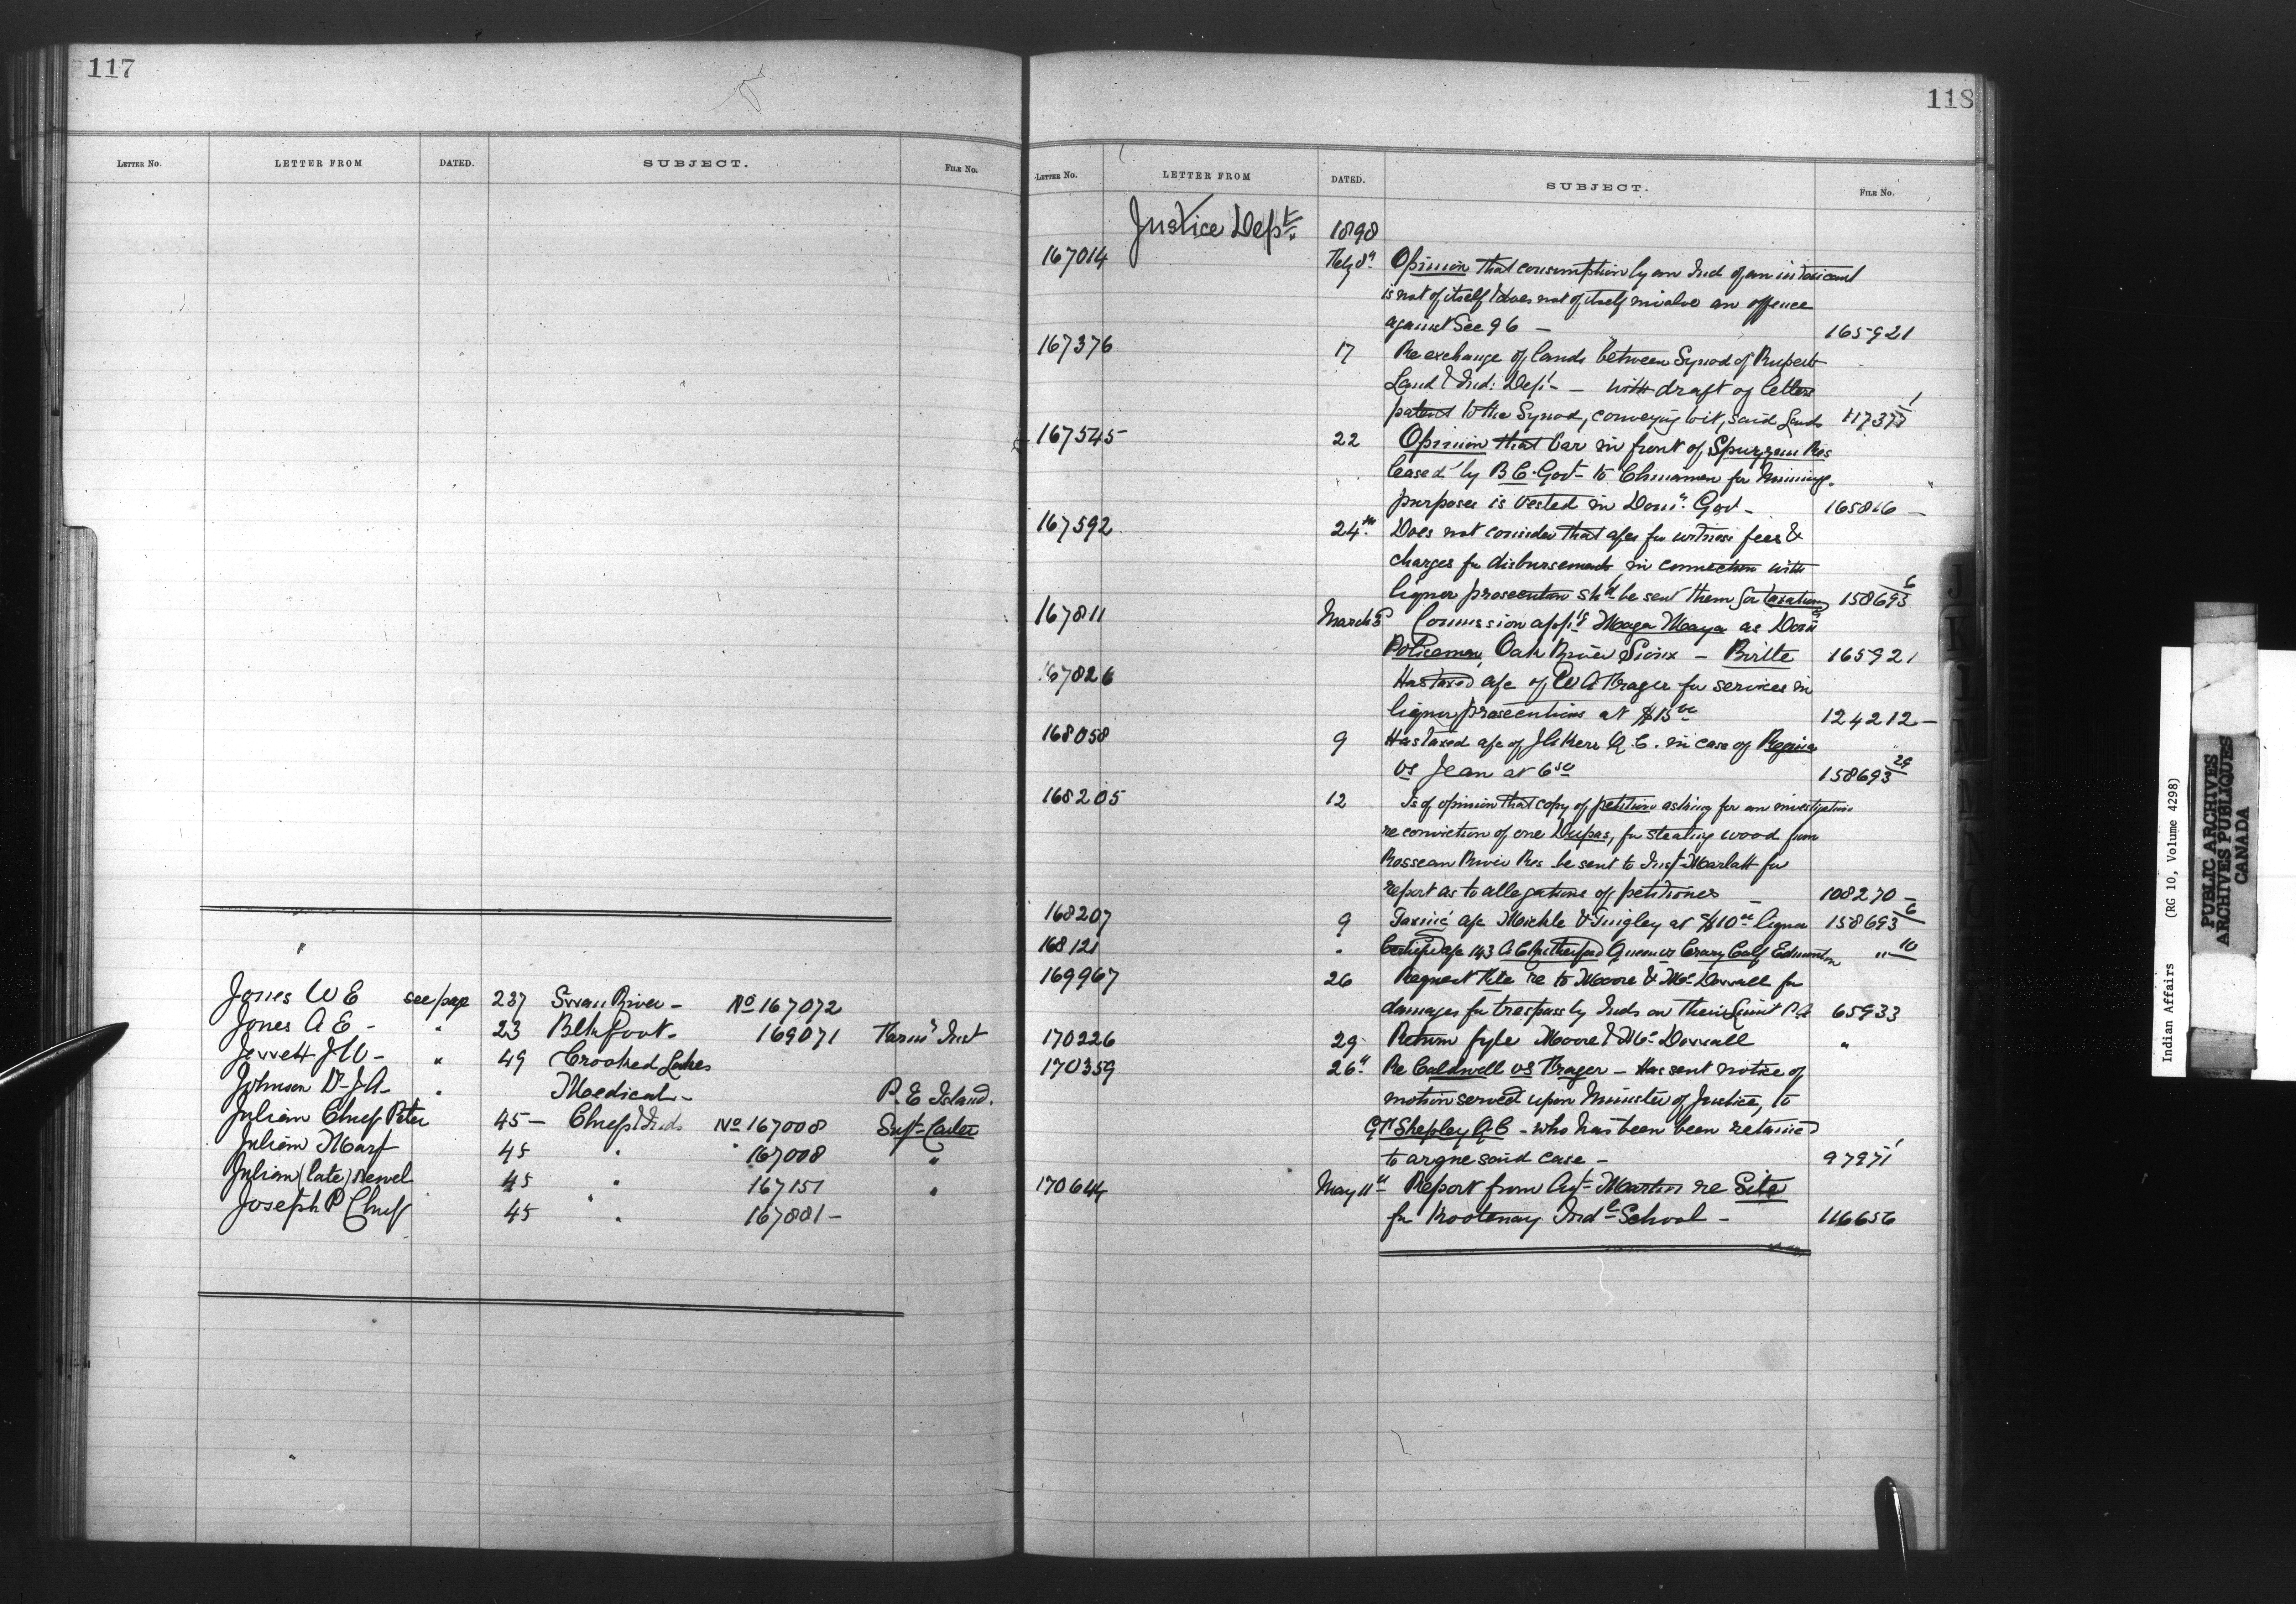 117
LETTER NO. LETTER FROM DATED. SUBJECT. FILE NO.
Jones W E see page 237 Swan River - No 167072
Jones A E - " 23 Blkfoot - 169071 Farmg Inst
Jerrett J W - " 49 Crooked Lakes
Johnson Dr J A - " Medical - P. E Island.
Julian Chief Peter 45 - Chiefs & Inds No 167008 Supt - Carter
Julian Mary 45 " " 167008 "
Julian (late) Newel 45 " 167151 "
Joseph P Chief 45 " 167881 -
118
LETTER NO. LETTER FROM DATED. SUBJECT. FILE NO.
Justice Dept. 1898
167014 Feby 8th Opinion that consumption by an Ind of an intoxicant
is not of itself & does not of itself involve an offence
against Sec 96 - 165921
167376 17 Re exchange of lands between Synod of Ruperts
Land & Ind: Dept - with draft of letters
patent to the Synod, conveying to it, said Lands 117377 1
167545 22 Opinion that bar in front of Spuzzum Res
leased by B C. Govt - to Chinamen for Mining
purposes is vested in Domn Govt - 165816 -
167592 24th Does not consider that a/cs for witness fees &
charges for disbursements in connection with
liquor prosecution shd be sent them for taxation 158693 6
167811 March 5 Commission apptg Maga Maya as Domn
Policeman, Oak River Sioux - Birtle 165921
167826 Has taxed a/c of W A Prager for services in
liquor prosecutions at $15 00 124212 -
168058 9 Has taxed a/c of J Kerr Q.C. in case of Regina
vs Jean at 6 50 158693 29
168205 12 Is of opinion that copy of petition asking for an investigation
re conviction of one Dupas, for stealing wood from
Rosseau River Res be sent to Insp Marlatt for
report as to allegations of petitioners - 108270 -
168207 9 Taxing a/c Mickle & Tingley at $10 00 liquor 158693 6
168121 " Certified a/c 143 A C Rutherford Queen vs Crazy Calf Edmonton " 10
169967 26 Request File re to Moore & McDowall for
damages for trespass by Inds on their Limit P.A 65933
170226 29 Return fyle Moore & McDowall "
170359 26th Re Caldwell vs Frager - Has sent notice of
motion served upon Minister of Justice, to
G F Shepley Q C - who has been been retained
to argue said case - 97971 1
170644 May 11th Report from Agt - Martin re Site
for Kootenay Indl School - 116656
PUBLIC ARCHIVES
ARCHIVES PUBLIQUES
CANADA
Indian Affairs (RG 10, Volume 4298)